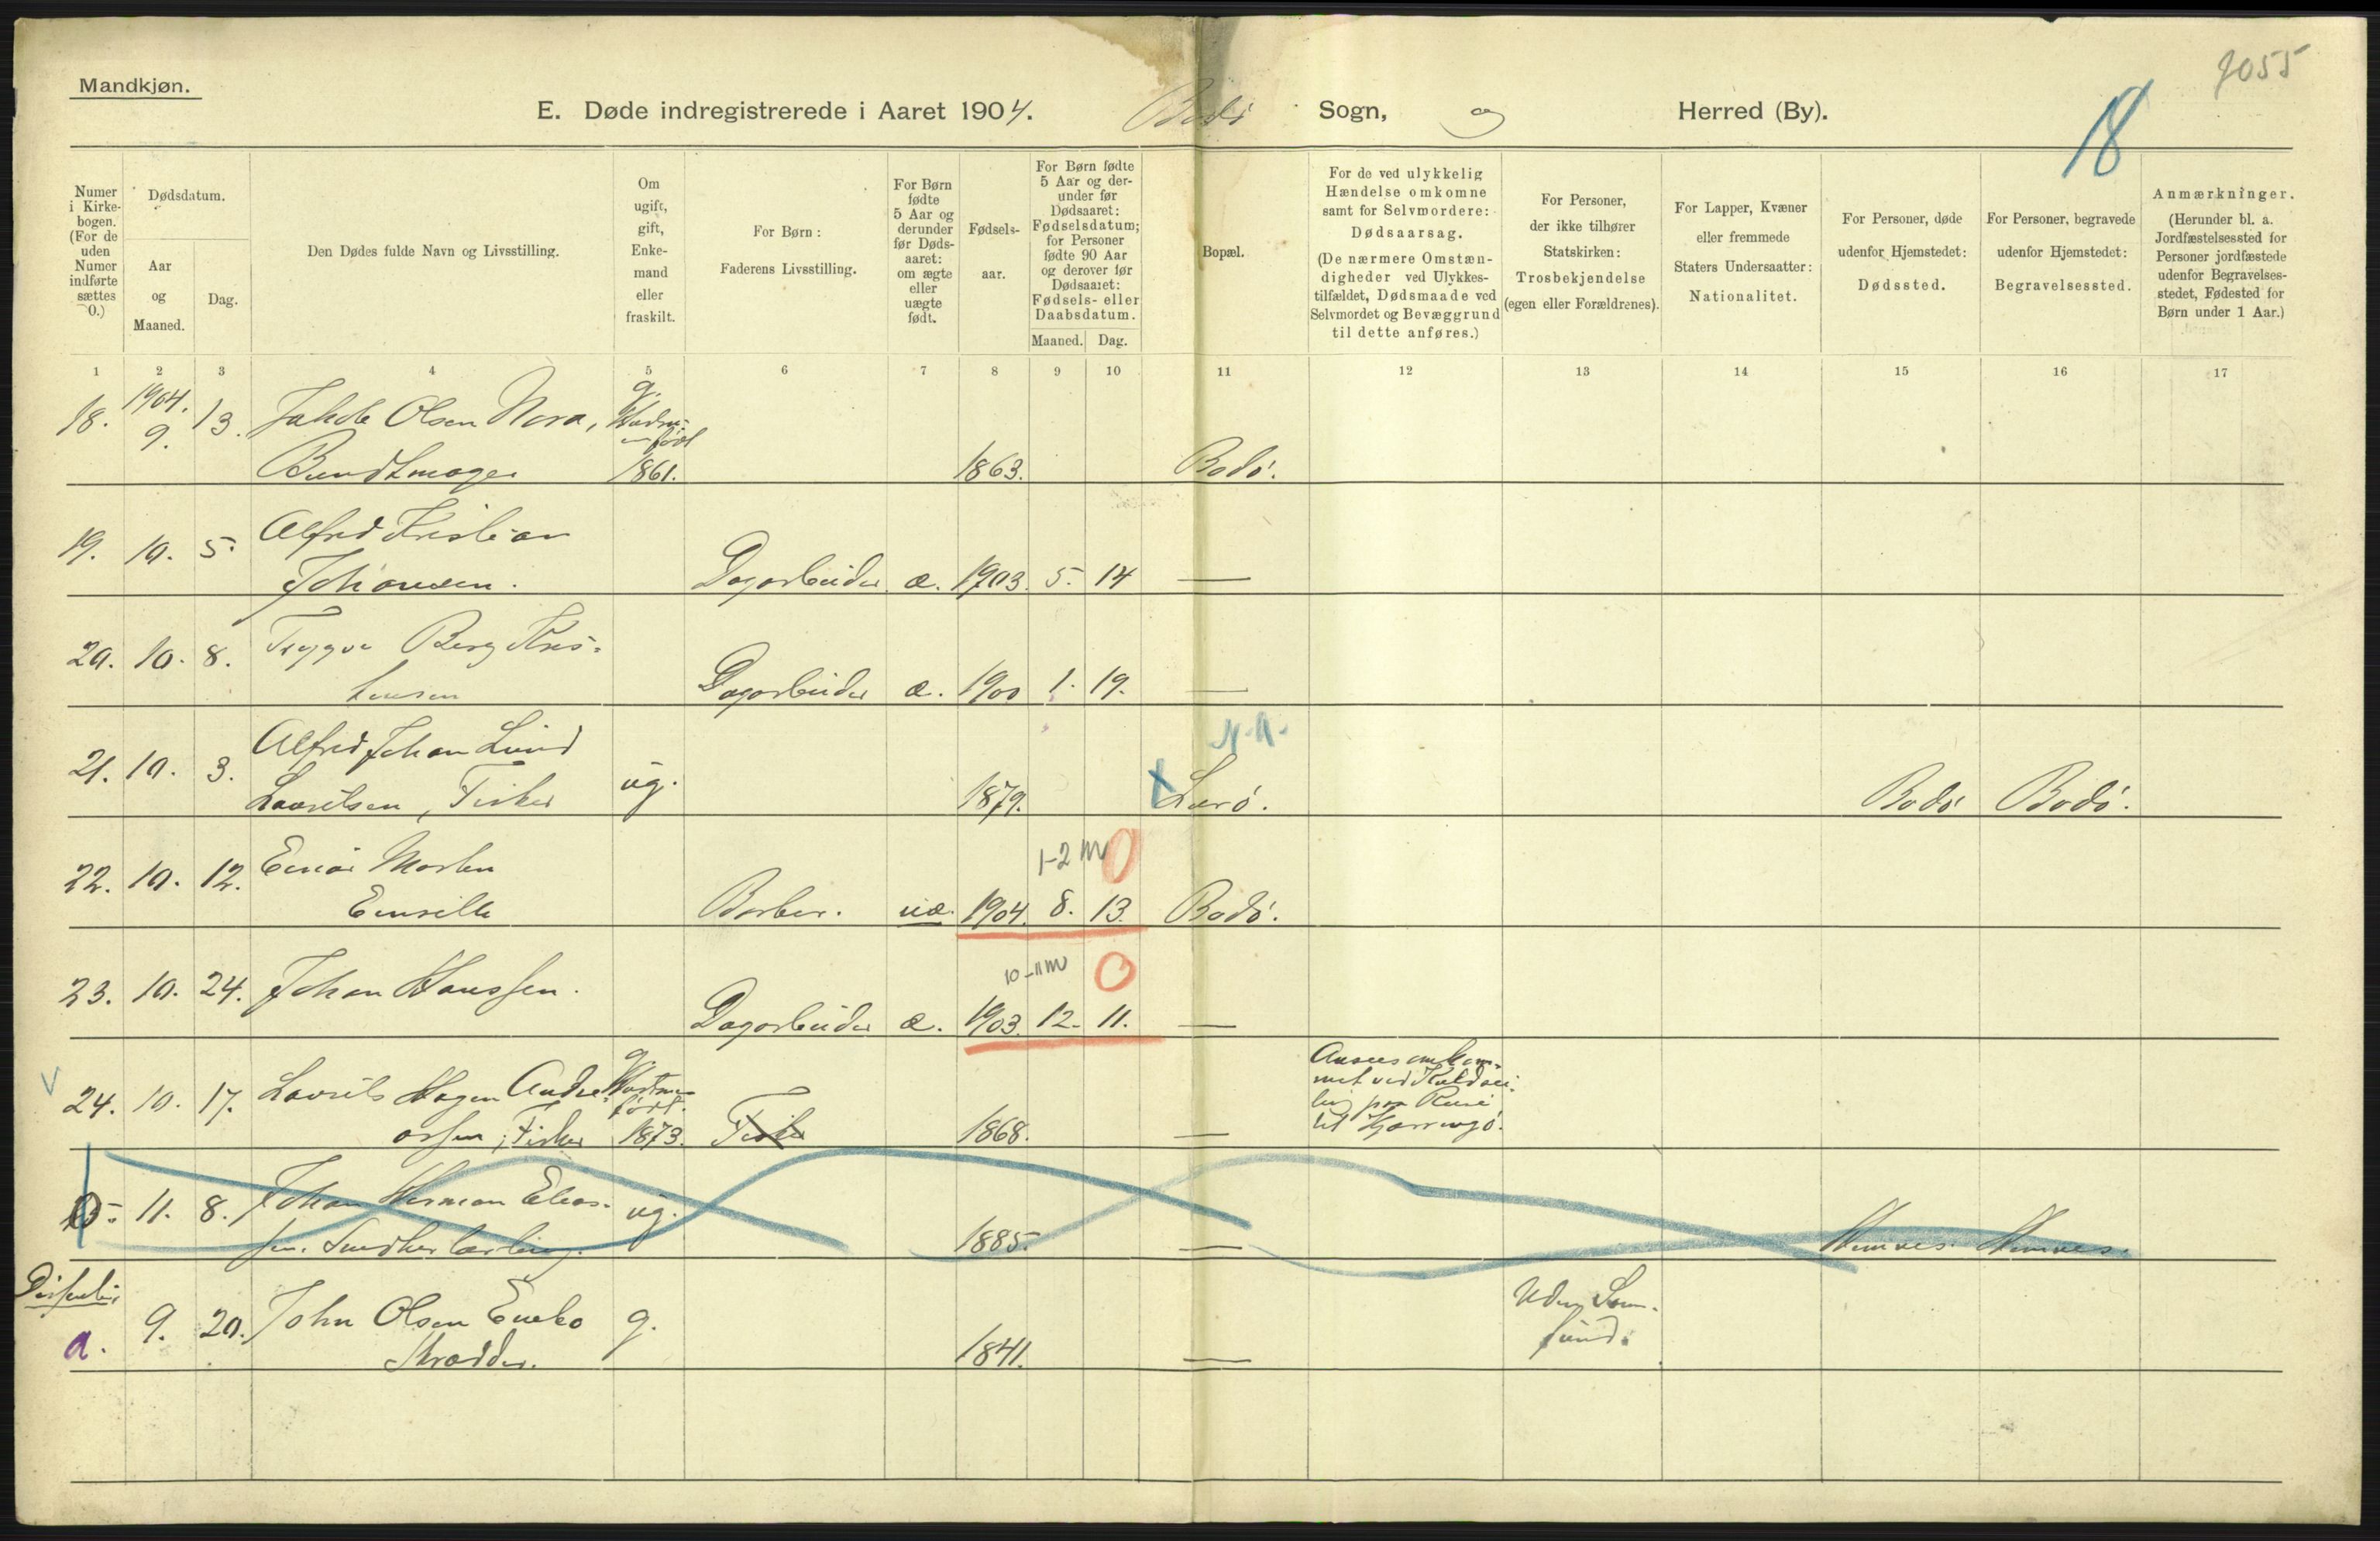 Mandkjøn.
7055
E. Døde indregistrerede i Aaret 1904. Bodø Sogn, og Herred (By).
18
Numer i Kirkebogen. (For de uden Numer indførte sættes 0.)
Dødsdatum.
Aar og Maaned.
Dag.
Den Dødes fulde Navn og Livsstilling.
Om ugift, gift, Enkemand eller fraskilt.
For Børn: Faderens Livsstilling.
For Børn fødte 5 Aar og derunder før Dødsaaret: om ægte eller uægte født.
Fødselsaar.
For Børn fødte 5 Aar og derunder før Dødsaaret: Fødselsdatum; for Personer fødte 90 Aar og derover før Dødsaaret: Fødsels- eller Daabsdatum.
Maaned. Dag.
Bopæl.
For de ved ulykkelig Hændelse omkomne samt for Selvmordere: Dødsaarsag. (De nærmere Omstændigheder ved Ulykkestilfældet, Dødsmaade ved Selvmordet og Bevæggrund til dette anføres.)
For Personer, der ikke tilhører Statskirken: Trosbekjendelse (egen eller Forældrenes).
For Lapper, Kvæner eller fremmede Staters Undersaatter: Nationalitet.
For Personer, døde udenfor Hjemstedet: Dødssted.
For Personer, begravede udenfor Hjemstedet: Begravelsessted.
Anmærkninger. (Herunder bl. a. Jordfæstelsessted for Personer jordfæstede udenfor Begravelsesstedet, Fødested for Børn under 1 Aar.)
1 2 3 4 5 6 7 8 9 10 11 12 13 14 15 16 17
18. 1904. 9. 13. Jakob Olsen Nora, g.
født
Bundtmager 1861. 1863. Bodø.
19. 10. 5. Alfred Kristian
Johansen. Dagarbeider æ. 1903. 5. 14 —
20. 10. 8. Trygve Berg Kris-
tensen Dagarbeider æ. 1900 1. 19. —
N.A.
21. 10. 3. Alfred Johan Lund
Lauritsen, Fisker ug. 1879. Bodø Bodø.
1-2 M 0
22. 10. 12. Einar Morten
Barber. uæ. 1904. 8. 13. Bodø.
10-11 M 0
23. 10. 24. Johan Hanssen.
Dagarbeider æ. 1903. 12. 11. —
V 24. 10. 17. Laurits Hagen Andre- g. Hustru Ansees omkom-
født. met ved Kuldsei-
ling paa Reise
assen, Fisker 1873. Fisker 1868. — til Kjærringø.
25. 11. 8. Johan Herman Elias- ug.
sen. Snedkerlærling. 1885. — Hemnes. Hemnes.
Dissenter
0. 9. 20. John Olsen Enebo g. Uden Sam-
fund.
Skrædder. 1841. —